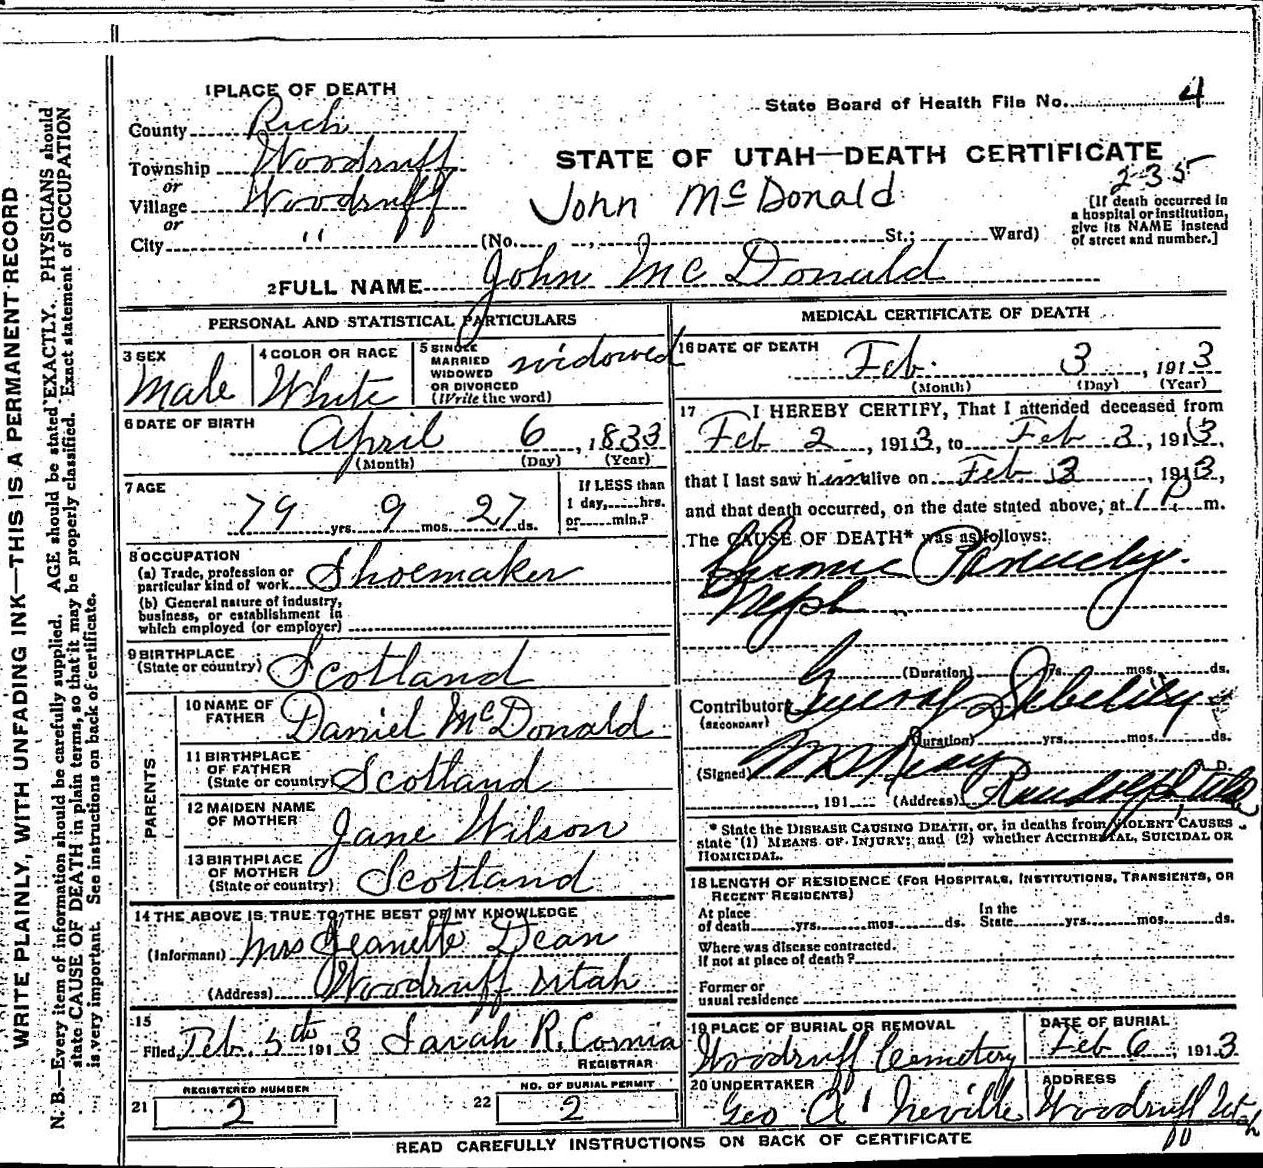 WRITE PLAINLY, WITH UNFADING INK—THIS IS A PERMANENT RECORD
N. B.—Every item of information should be carefully supplied. AGE should be stated EXACTLY. PHYSICIANS should
state CAUSE OF DEATH in plain terms, so that it may be properly classified. Exact statement of OCCUPATION
is very important. See instructions on back of certificate.
1 PLACE OF DEATH
State Board of Health File No. 4
County Rich
Township Woodruff
STATE OF UTAH—DEATH CERTIFICATE
or
Village Woodruff
or
City "
John McDonald
235
[If death occurred in
a hospital or institution,
give its NAME instead
of street and number.]
(No. , St.; Ward)
2 FULL NAME John Mc Donald
PERSONAL AND STATISTICAL PARTICULARS
3 SEX
Male
4 COLOR OR RACE
White
5 SINGLE
MARRIED
WIDOWED
OR DIVORCED
(Write the word)
widowed
6 DATE OF BIRTH
April 6, 1833
(Month) (Day) (Year)
7 AGE
79 yrs. 9 mos. 27 ds.
If LESS than
1 day, hrs.
or min.?
8 OCCUPATION
(a) Trade, profession or
particular kind of work Shoemaker
(b) General nature of industry,
business, or establishment in
which employed (or employer)
9 BIRTHPLACE
(State or country) Scotland
PARENTS
10 NAME OF
FATHER Daniel McDonald
11 BIRTHPLACE
OF FATHER
(State or country) Scotland
12 MAIDEN NAME
OF MOTHER Jane Wilson
13 BIRTHPLACE
OF MOTHER
(State or country) Scotland
14 THE ABOVE IS TRUE TO THE BEST OF MY KNOWLEDGE
(Informant) Mrs Jeanette Dean
(Address) Woodruff Utah
15
Filed Feb. 5th 1913 Sarah R. Cornia
REGISTRAR
REGISTERED NUMBER
21 2
NO. OF BURIAL PERMIT
22 2
MEDICAL CERTIFICATE OF DEATH
16 DATE OF DEATH
Feb. 3, 1913
(Month) (Day) (Year)
17 I HEREBY CERTIFY, That I attended deceased from
Feb 2, 1913, to Feb 3, 1913,
that I last saw him alive on Feb 3, 1913,
and that death occurred, on the date stated above, at 1 P. m.
The CAUSE OF DEATH* was as follows:
Chronic
Neph
(Duration) yrs. mos. ds.
Contributory General Debility
(SECONDARY)
(Duration) yrs. mos. ds.
(Signed) M. D.
, 191 (Address) Randolph Utah
* State the DISEASE CAUSING DEATH, or, in deaths from VIOLENT CAUSES
state (1) MEANS OF INJURY; and (2) whether ACCIDENTAL, SUICIDAL OR
HOMICIDAL.
18 LENGTH OF RESIDENCE (FOR HOSPITALS, INSTITUTIONS, TRANSIENTS, OR
RECENT RESIDENTS)
At place
of death yrs. mos. ds.
In the
State yrs. mos. ds.
Where was disease contracted.
if not at place of death?
Former or
usual residence
19 PLACE OF BURIAL OR REMOVAL
Woodruff Cemetery
DATE OF BURIAL
Feb 6, 1913
20 UNDERTAKER
Geo A Neville
ADDRESS
Woodruff Utah
READ CAREFULLY INSTRUCTIONS ON BACK OF CERTIFICATE